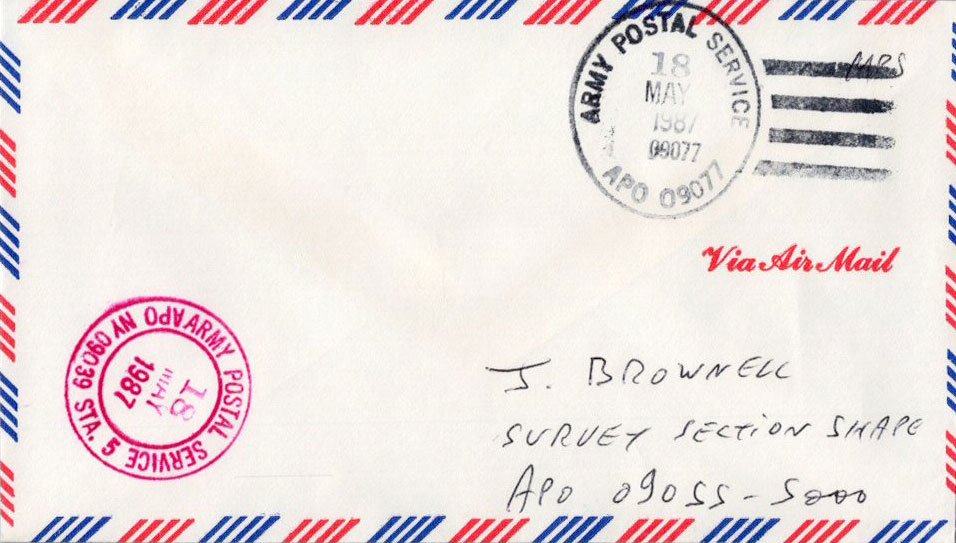 ARMY POSTAL SERVICE
18
MAY
1987
09077
APO 09077
MPS
Via Air Mail
ARMY POSTAL SERVICE
APO NY 09039 STA. 5
18
MAY
1987
J. BROWNELL
SURVEY SECTION SHAPE
APO 09055-5000